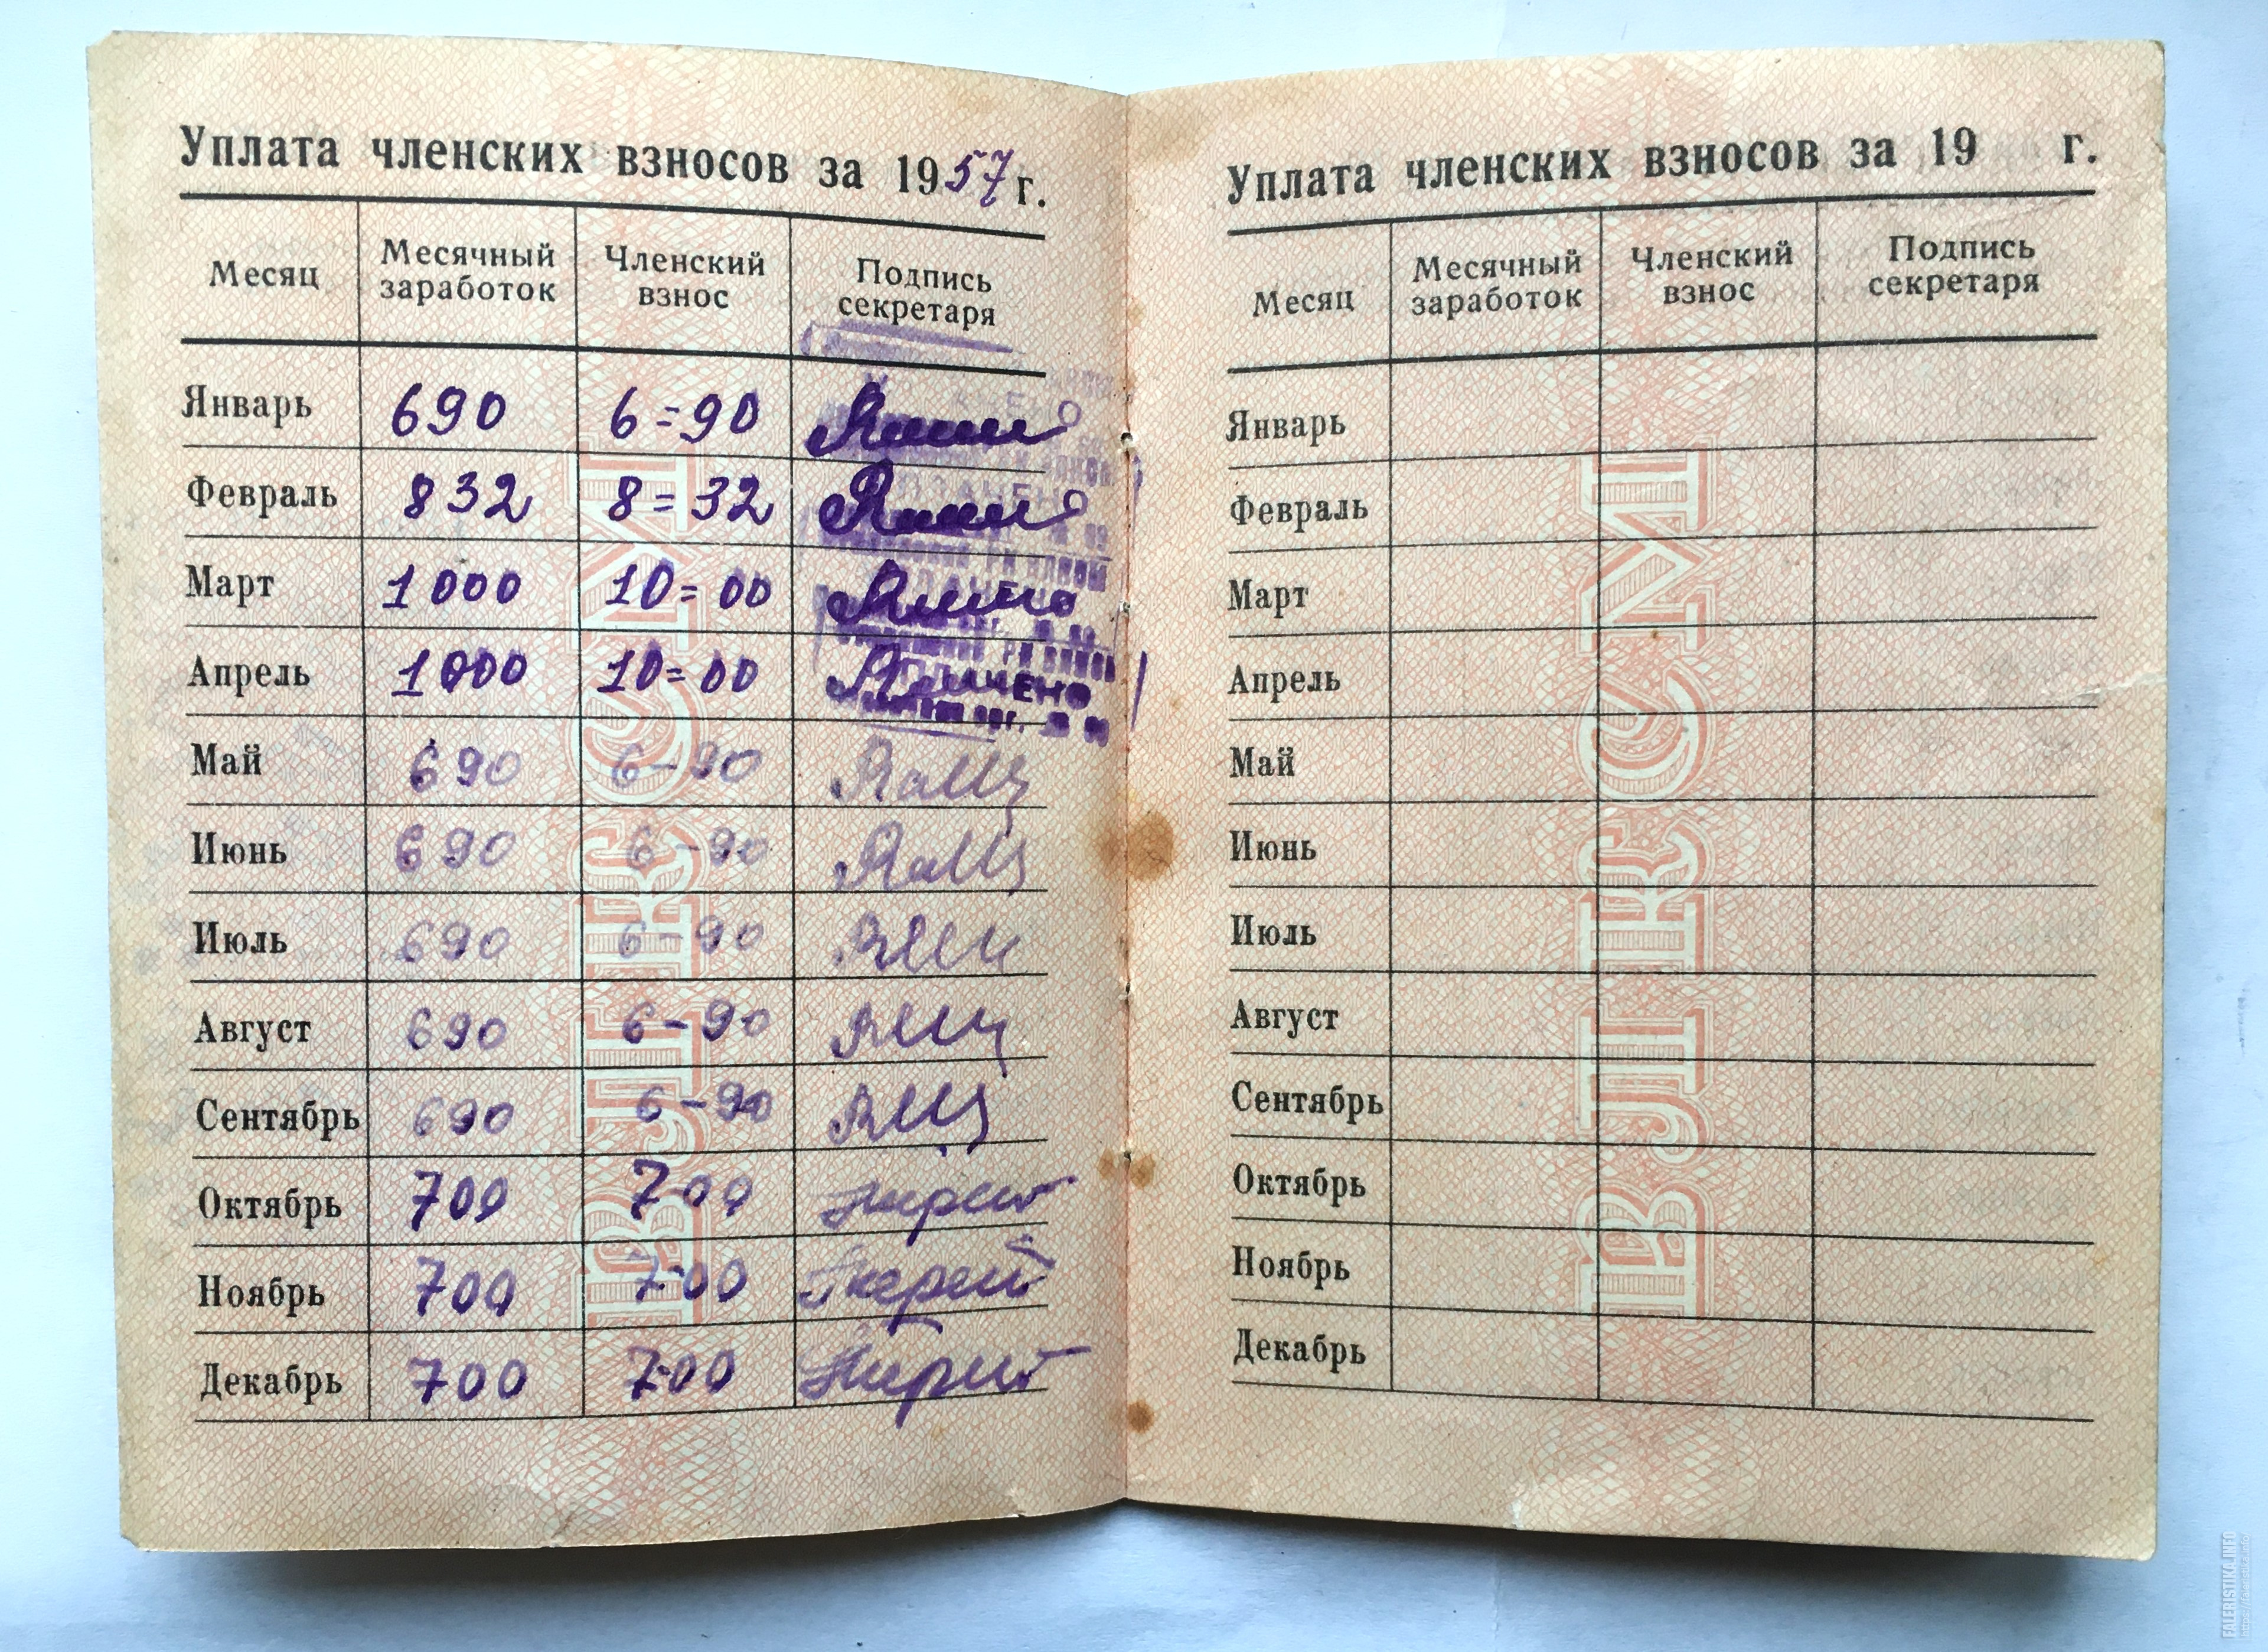 Уплата членских взносов за 1957 г.
Месяц Месячный заработок Членский взнос Подпись секретаря
Январь 690 6=90
Февраль 832 8=32
Март 1000 10=00
Апрель 1000 10=00
Май 690 6-90
Июнь 690 6-90
Июль 690 6-90
Август 690 6-90
Сентябрь 690 6-90
Октябрь 700 7-00
Ноябрь 700 7-00
Декабрь 700 7-00
ВЛКСМ
Уплата членских взносов за 19 г.
Месяц Месячный заработок Членский взнос Подпись секретаря
Январь
Февраль
Март
Апрель
Май
Июнь
Июль
Август
Сентябрь
Октябрь
Ноябрь
Декабрь
ВЛКСМ
FALERISTIKA.INFO